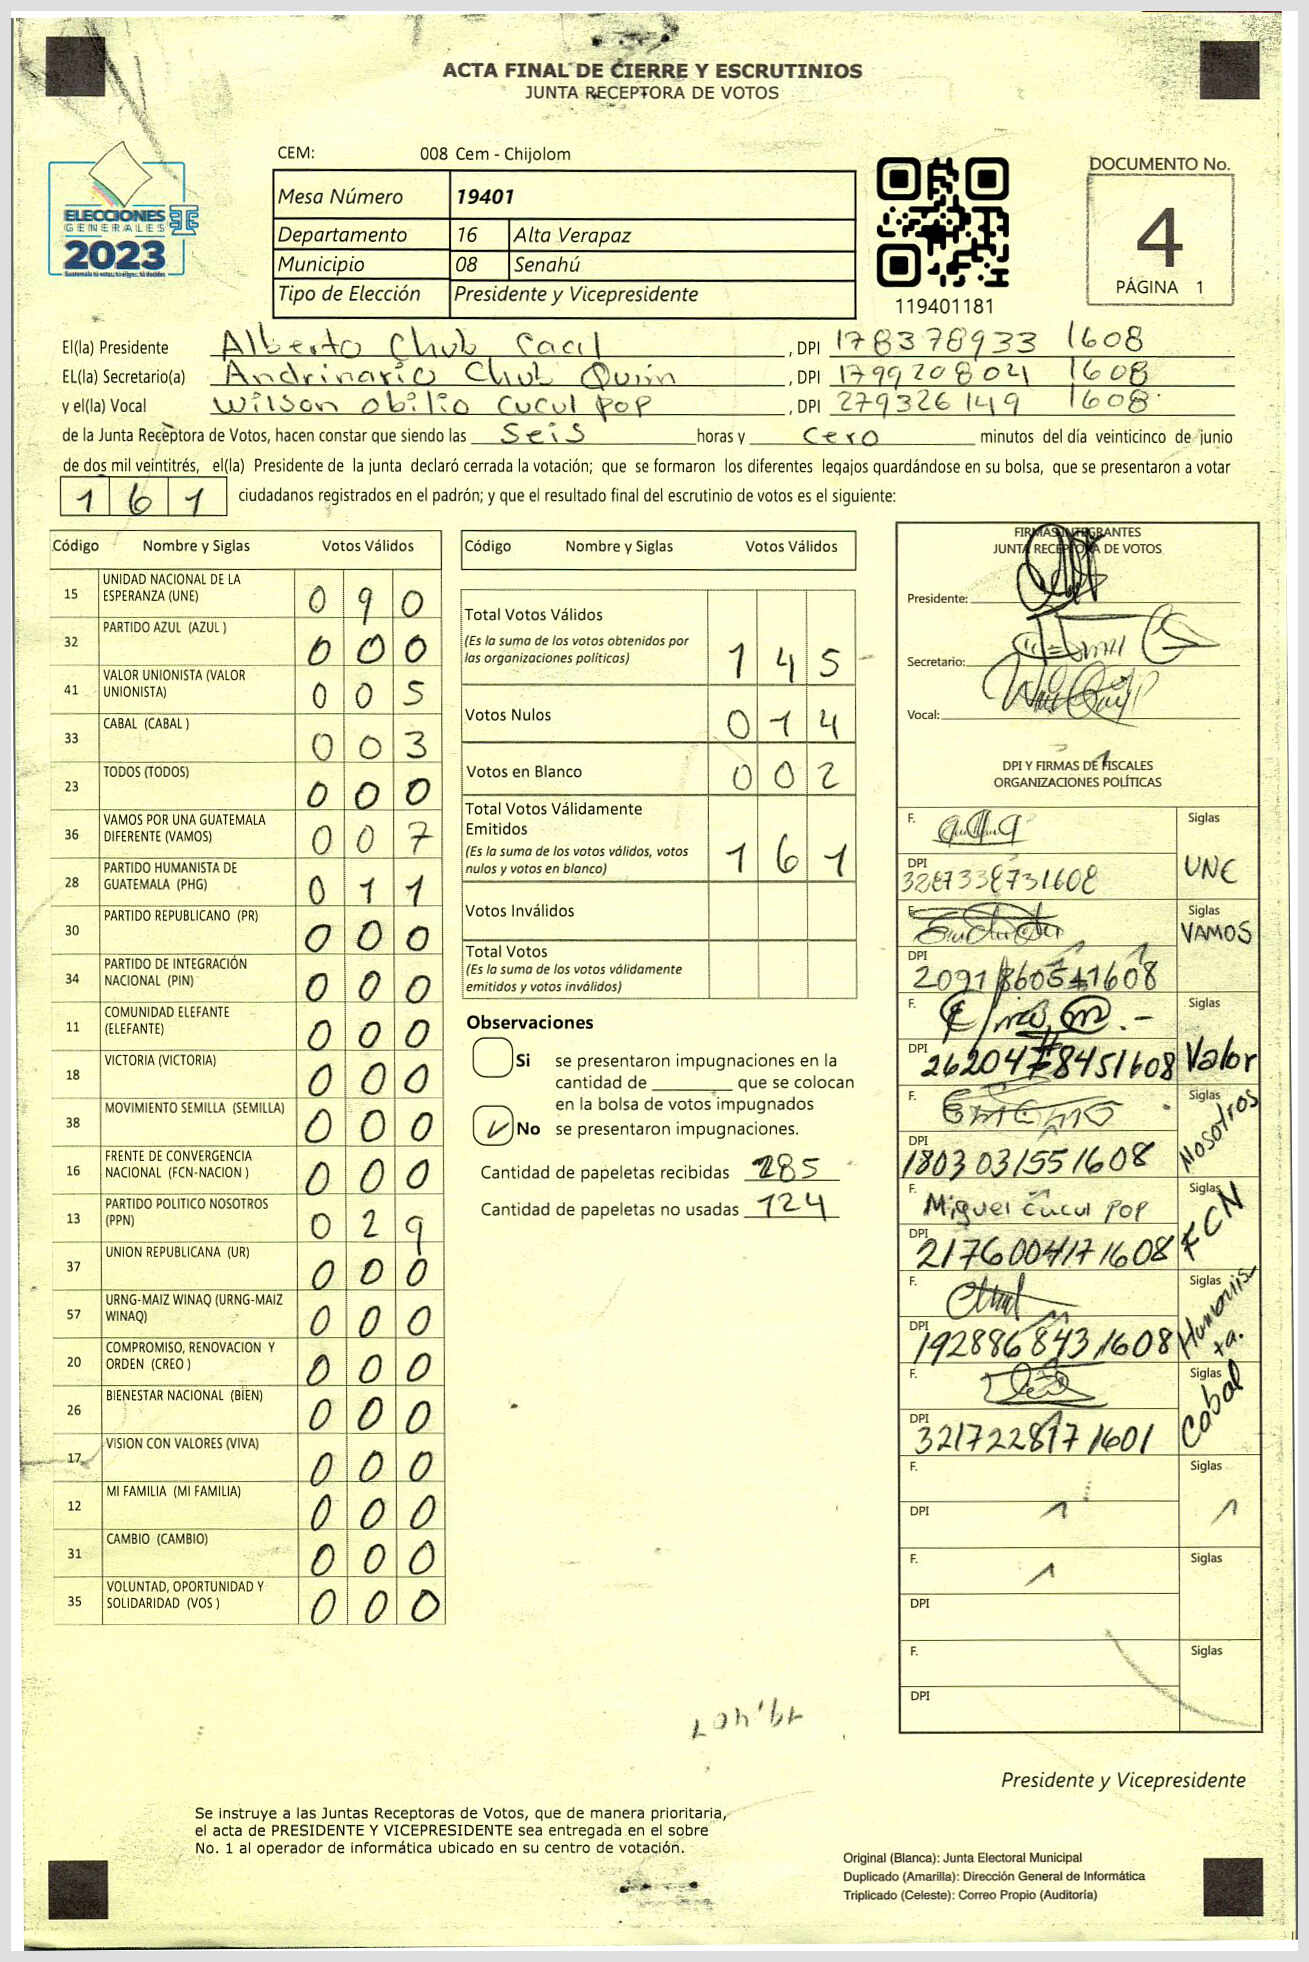 ACTA FINAL DE CIERRE Y ESCRUTINIOS
JUNTA RECEPTORA DE VOTOS
CEM: 008 Cem - Chijolom
Mesa Número 19401
Departamento 16 Alta Verapaz
Municipio 08 Senahú
Tipo de Elección Presidente y Vicepresidente
ELECCIONES
GENERALES
2023
119401181
DOCUMENTO No.
4
PÁGINA 1
El(la) Presidente Alberto Chub Caal , DPI 178378933 1608
EL(la) Secretario(a) Andrinario Chub Quim , DPI 179920804 1608
y el(la) Vocal Wilson obilio cucul pop , DPI 279326149 1608
de la Junta Receptora de Votos, hacen constar que siendo las Seis horas y cero minutos del día veinticinco de junio
de dos mil veintitrés, el(la) Presidente de la junta declaró cerrada la votación; que se formaron los diferentes legajos guardándose en su bolsa, que se presentaron a votar
161 ciudadanos registrados en el padrón; y que el resultado final del escrutinio de votos es el siguiente:
Código Nombre y Siglas Votos Válidos
15 UNIDAD NACIONAL DE LA ESPERANZA (UNE) 090
32 PARTIDO AZUL (AZUL ) 000
41 VALOR UNIONISTA (VALOR UNIONISTA) 005
33 CABAL (CABAL ) 003
23 TODOS (TODOS) 000
36 VAMOS POR UNA GUATEMALA DIFERENTE (VAMOS) 007
28 PARTIDO HUMANISTA DE GUATEMALA (PHG) 011
30 PARTIDO REPUBLICANO (PR) 000
34 PARTIDO DE INTEGRACIÓN NACIONAL (PIN) 000
11 COMUNIDAD ELEFANTE (ELEFANTE) 000
18 VICTORIA (VICTORIA) 000
38 MOVIMIENTO SEMILLA (SEMILLA) 000
16 FRENTE DE CONVERGENCIA NACIONAL (FCN-NACION ) 000
13 PARTIDO POLITICO NOSOTROS (PPN) 029
37 UNION REPUBLICANA (UR) 000
57 URNG-MAIZ WINAQ (URNG-MAIZ WINAQ) 000
20 COMPROMISO, RENOVACION Y ORDEN (CREO ) 000
26 BIENESTAR NACIONAL (BIEN) 000
17 VISION CON VALORES (VIVA) 000
12 MI FAMILIA (MI FAMILIA) 000
31 CAMBIO (CAMBIO) 000
35 VOLUNTAD, OPORTUNIDAD Y SOLIDARIDAD (VOS ) 000
Código Nombre y Siglas Votos Válidos
Total Votos Válidos 145
(Es la suma de los votos obtenidos por
las organizaciones políticas)
Votos Nulos 014
Votos en Blanco 002
Total Votos Válidamente
Emitidos 161
(Es la suma de los votos válidos, votos
nulos y votos en blanco)
Votos Inválidos
Total Votos
(Es la suma de los votos válidamente
emitidos y votos inválidos)
Observaciones
Si se presentaron impugnaciones en la
cantidad de ________ que se colocan
en la bolsa de votos impugnados
No se presentaron impugnaciones.
Cantidad de papeletas recibidas 285
Cantidad de papeletas no usadas 124
FIRMAS INTEGRANTES
JUNTA RECEPTORA DE VOTOS
Presidente:
Secretario:
Vocal:
DPI Y FIRMAS DE FISCALES
ORGANIZACIONES POLÍTICAS
F. Siglas
DPI 3287338731608 UNE
F. Siglas VAMOS
DPI 2091860541608
F. Siglas
DPI 2620478451608 Valor
F. Siglas Nosotros
DPI 1803031551608
F. Miguel cucul pop Siglas FCN
DPI 2176004171608
F. Siglas Humanista.
DPI 1928868431608
F. Siglas Cabal
DPI 3217228171601
F. Siglas
DPI
F. Siglas
DPI
F. Siglas
DPI
19,401
Presidente y Vicepresidente
Se instruye a las Juntas Receptoras de Votos, que de manera prioritaria,
el acta de PRESIDENTE Y VICEPRESIDENTE sea entregada en el sobre
No. 1 al operador de informática ubicado en su centro de votación.
Original (Blanca): Junta Electoral Municipal
Duplicado (Amarilla): Dirección General de Informática
Triplicado (Celeste): Correo Propio (Auditoría)